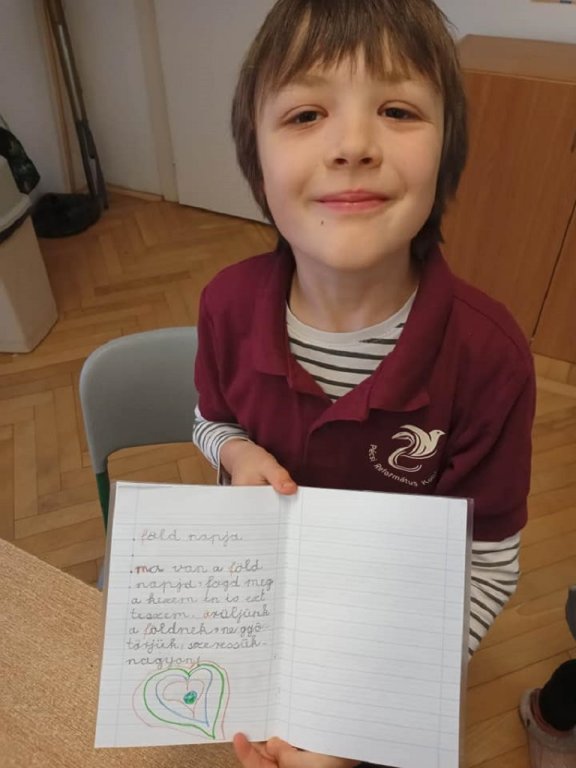 Pécsi Református Kol
föld napja
ma van a föld
napja, fogd meg
a kezem én is ezt
teszem. örüljünk
a földnek, ne gyö-
törjük, szeressük
nagyon!